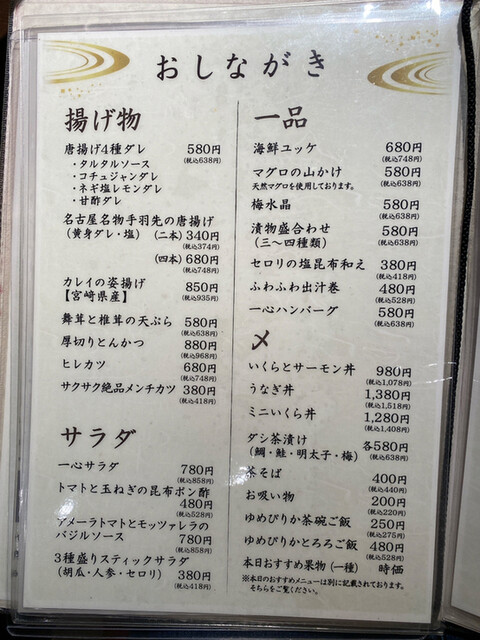 おしながき
揚げ物
唐揚げ4種ダレ 580円
(税込638円)
・タルタルソース
・コチュジャンダレ
・ネギ塩レモンダレ
・甘酢ダレ
名古屋名物手羽先の唐揚げ
(黄身ダレ・塩) (二本) 340円
(税込374円)
(四本) 680円
(税込748円)
カレイの姿揚げ 850円
【宮崎県産】 (税込935円)
舞茸と椎茸の天ぷら 580円
(税込638円)
厚切りとんかつ 880円
(税込968円)
ヒレカツ 680円
(税込748円)
サクサク絶品メンチカツ 380円
(税込418円)
サラダ
一心サラダ 780円
(税込858円)
トマトと玉ねぎの昆布ポン酢
480円
(税込528円)
アメーラトマトとモッツァレラの
バジルソース 780円
(税込858円)
3種盛りスティックサラダ
(胡瓜・人参・セロリ) 380円
(税込418円)
一品
海鮮ユッケ 680円
(税込748円)
マグロの山かけ 580円
天然マグロを使用しております。 (税込638円)
梅水晶 580円
(税込638円)
漬物盛合わせ 580円
(三〜四種類) (税込638円)
セロリの塩昆布和え 380円
(税込418円)
ふわふわ出汁巻 480円
(税込528円)
一心ハンバーグ 580円
(税込638円)
〆
いくらとサーモン丼 980円
(税込1,078円)
うなぎ丼 1,380円
(税込1,518円)
ミニいくら丼 1,280円
(税込1,408円)
ダシ茶漬け 各580円
(鯛・鮭・明太子・梅) (税込638円)
茶そば 400円
(税込440円)
お吸い物 200円
(税込220円)
ゆめぴりか茶碗ご飯 250円
(税込275円)
ゆめぴりかとろろご飯 480円
(税込528円)
本日おすすめ果物(一種) 時価
※本日のおすすめメニューは別に記載されております。
そちらをご覧ください。